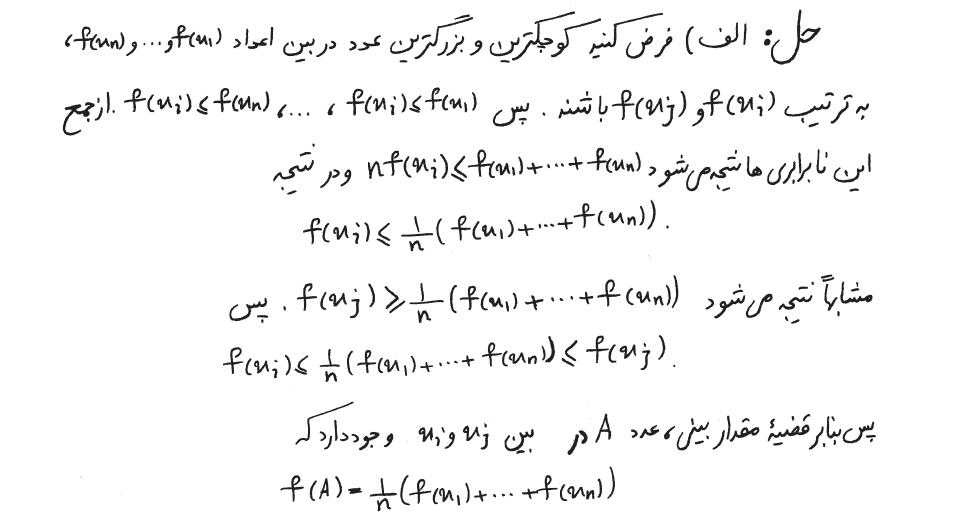 حل: الف) فرض کنید کوچکترین و بزرگترین عدد در بین اعداد f(x₁) و ... و f(xₙ)،
به ترتیب f(xᵢ) و f(xⱼ) باشند. پس f(xᵢ)≤f(x₁) ، ... ، f(xᵢ)≤f(xₙ). از جمع
این نابرابری ها نتیجه می شود nf(xᵢ)≤f(x₁)+...+f(xₙ) و در نتیجه
f(xᵢ)≤ 1/n (f(x₁)+...+f(xₙ)).
مشابهاً نتیجه می شود f(xⱼ)≥ 1/n (f(x₁)+...+f(xₙ)). پس
f(xᵢ)≤ 1/n (f(x₁)+...+f(xₙ))≤f(xⱼ).
پس بنابر قضیهٔ مقدار بینی، عدد A در بین xⱼ و xᵢ وجود دارد که
f(A)= 1/n (f(x₁)+...+f(xₙ))